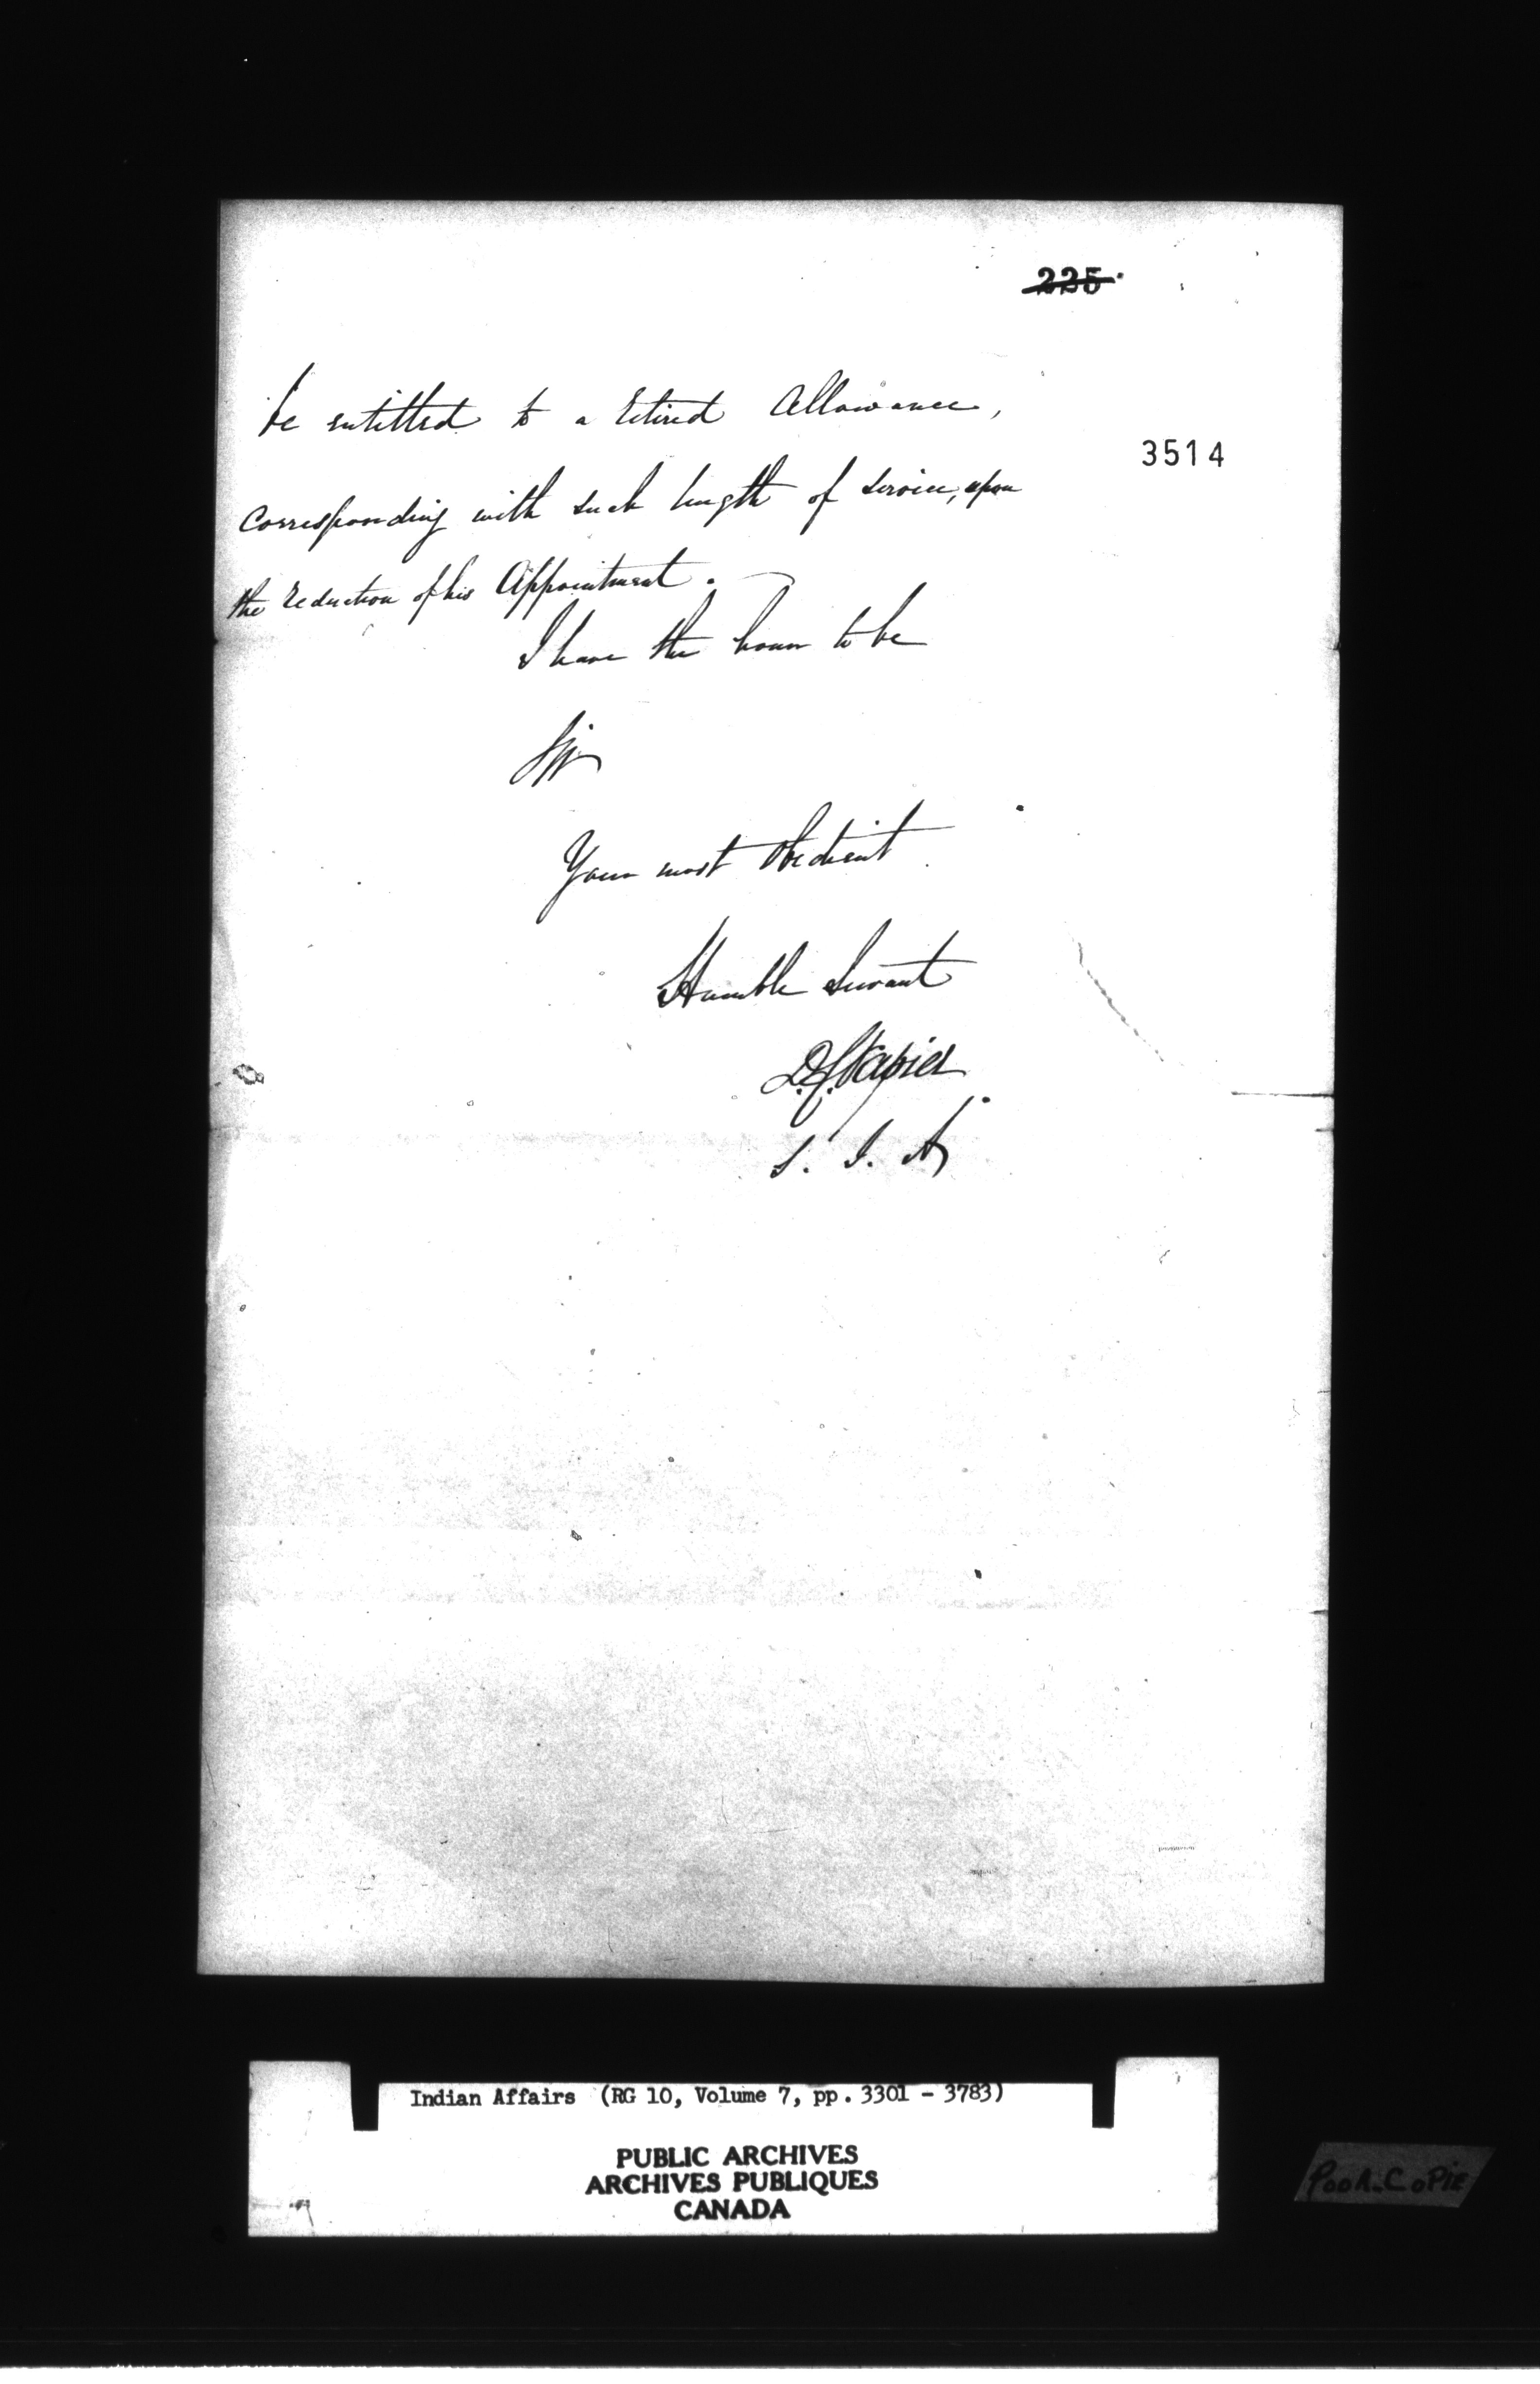 225
be entitled to a retired Allowance,
3514
corresponding with such length of service, upon
the reduction of his Appointment.
I have the honor to be
Sir
Your most Obedient
Humble Servant
D.C. Napier
S. I. A
Indian Affairs (RG 10, Volume 7, pp. 3301 - 3783)
PUBLIC ARCHIVES
ARCHIVES PUBLIQUES
CANADA
POOR COPIE